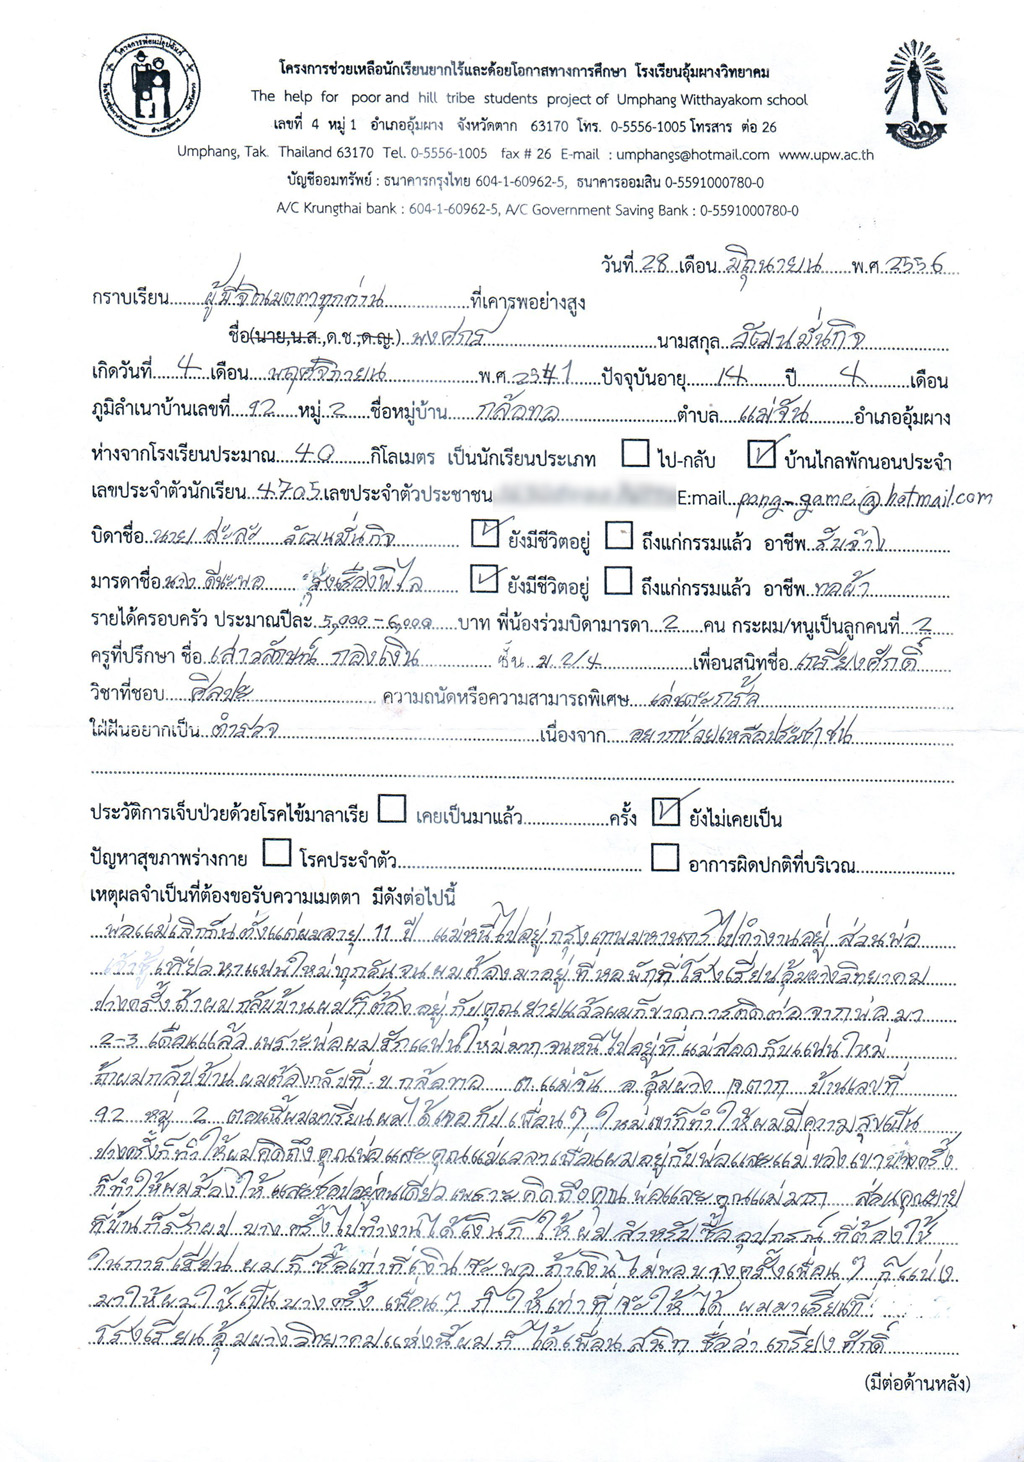 โครงการช่วยเหลือนักเรียนยากไร้และด้อยโอกาสทางการศึกษา โรงเรียนอุ้มผางวิทยาคม
The help for poor and hill tribe students project of Umphang Witthayakom school
เลขที่ 4 หมู่ 1 อำเภออุ้มผาง จังหวัดตาก 63170 โทร. 0-5556-1005 โทรสาร ต่อ 26
Umphang, Tak. Thailand 63170 Tel. 0-5556-1005 fax # 26 E-mail : umphangs@hotmail.com www.upw.ac.th
บัญชีออมทรัพย์ : ธนาคารกรุงไทย 604-1-60962-5, ธนาคารออมสิน 0-5591000780-0
A/C Krungthai bank : 604-1-60962-5, A/C Government Saving Bank : 0-5591000780-0
วันที่ 28 เดือน มิถุนายน พ.ศ. 2556
กราบเรียน ผู้มีจิตเมตตาทุกท่าน ที่เคารพอย่างสูง
ชื่อ(นาย,น.ส.,ด.ช.,ด.ญ.) พงศกร นามสกุล วัฒนมั่นกิจ
เกิดวันที่ 4 เดือน พฤศจิกายน พ.ศ. 2541 ปัจจุบันอายุ 14 ปี 4 เดือน
ภูมิลำเนาบ้านเลขที่ 92 หมู่ 2 ชื่อหมู่บ้าน กล้อทอ ตำบล แม่จัน อำเภออุ้มผาง
ห่างจากโรงเรียนประมาณ 40 กิโลเมตร เป็นนักเรียนประเภท ไป-กลับ บ้านไกลพักนอนประจำ
เลขประจำตัวนักเรียน 4705 เลขประจำตัวประชาชน E:mail pang-game@hotmail.com
บิดาชื่อ นาย ล่ะล่ะ วัฒนมั่นกิจ ยังมีชีวิตอยู่ ถึงแก่กรรมแล้ว อาชีพ รับจ้าง
มารดาชื่อ นาง ดีนะพอ รุ่งเรืองพิไล ยังมีชีวิตอยู่ ถึงแก่กรรมแล้ว อาชีพ ทอผ้า
รายได้ครอบครัว ประมาณปีละ 5,000-6,000 บาท พี่น้องร่วมบิดามารดา 2 คน กระผม/หนูเป็นลูกคนที่ 2
ครูที่ปรึกษา ชื่อ เสาวลักษณ์ กองเงิน ชั้น ม 2/4 เพื่อนสนิทชื่อ เกรียงศักดิ์
วิชาที่ชอบ ศิลปะ ความถนัดหรือความสามารถพิเศษ เล่นตะกร้อ
ใฝ่ฝันอยากเป็น ตำรวจ เนื่องจาก อยากช่วยเหลือประชาชน
ประวัติการเจ็บป่วยด้วยโรคไข้มาลาเรีย เคยเป็นมาแล้ว ครั้ง ยังไม่เคยเป็น
ปัญหาสุขภาพร่างกาย โรคประจำตัว อาการผิดปกติที่บริเวณ
เหตุผลจำเป็นที่ต้องขอรับความเมตตา มีดังต่อไปนี้
พ่อแม่เลิกกันตั้งแต่ผมอายุ 11 ปี แม่หนีไปอยู่กรุงเทพมหานครไปทำงานอยู่ ส่วนพ่อ
เที่ยวหาแฟนใหม่ทุกวันจนผมต้องมาอยู่ที่หอพักที่โรงเรียนอุ้มผางวิทยาคม
บางครั้งถ้าผมกลับบ้านผมก็ต้องอยู่กับคุณยายแล้วผมก็ขาดการติดต่อจากพ่อมา
2-3 เดือนแล้ว เพราะพ่อผมรักแฟนใหม่มากจนหนีไปอยู่ที่แม่สอดกับแฟนใหม่
ถ้าผมกลับบ้านผมต้องกลับที่ บ.กล้อทอ ต.แม่จัน อ.อุ้มผาง จ.ตาก บ้านเลขที่
92 หมู่ 2 ตอนนี้ผมมาเรียนผมได้เจอกับเพื่อนๆ ใหม่เขาก็ทำให้ผมมีความสุขเป็น
บางครั้งก็ทำให้ผมคิดถึงคุณพ่อและคุณแม่เวลาเพื่อนผมอยู่กับพ่อและแม่ของเขาบางครั้ง
ก็ทำให้ผมร้องไห้ และชอบอยู่คนเดียวเพราะคิดถึงคุณพ่อและคุณแม่มาก ส่วนคุณยาย
ที่บ้านก็รักผม บางครั้งไปทำงานได้เงินก็ให้ผมสำหรับซื้ออุปกรณ์ที่ต้องใช้
ในการเรียน ผมก็ซื้อเท่าที่เงินจะพอ ถ้าเงินไม่พอบางครั้งเพื่อนๆ ก็แบ่ง
มาให้ผมใช้เป็นบางครั้ง เพื่อนๆ ก็ให้เท่าที่จะให้ได้ ผมมาเรียนที่
โรงเรียนอุ้มผางวิทยาคมแห่งนี้ผมก็ได้เพื่อนสนิท ชื่อว่า เกรียงศักดิ์
(มีต่อด้านหลัง)